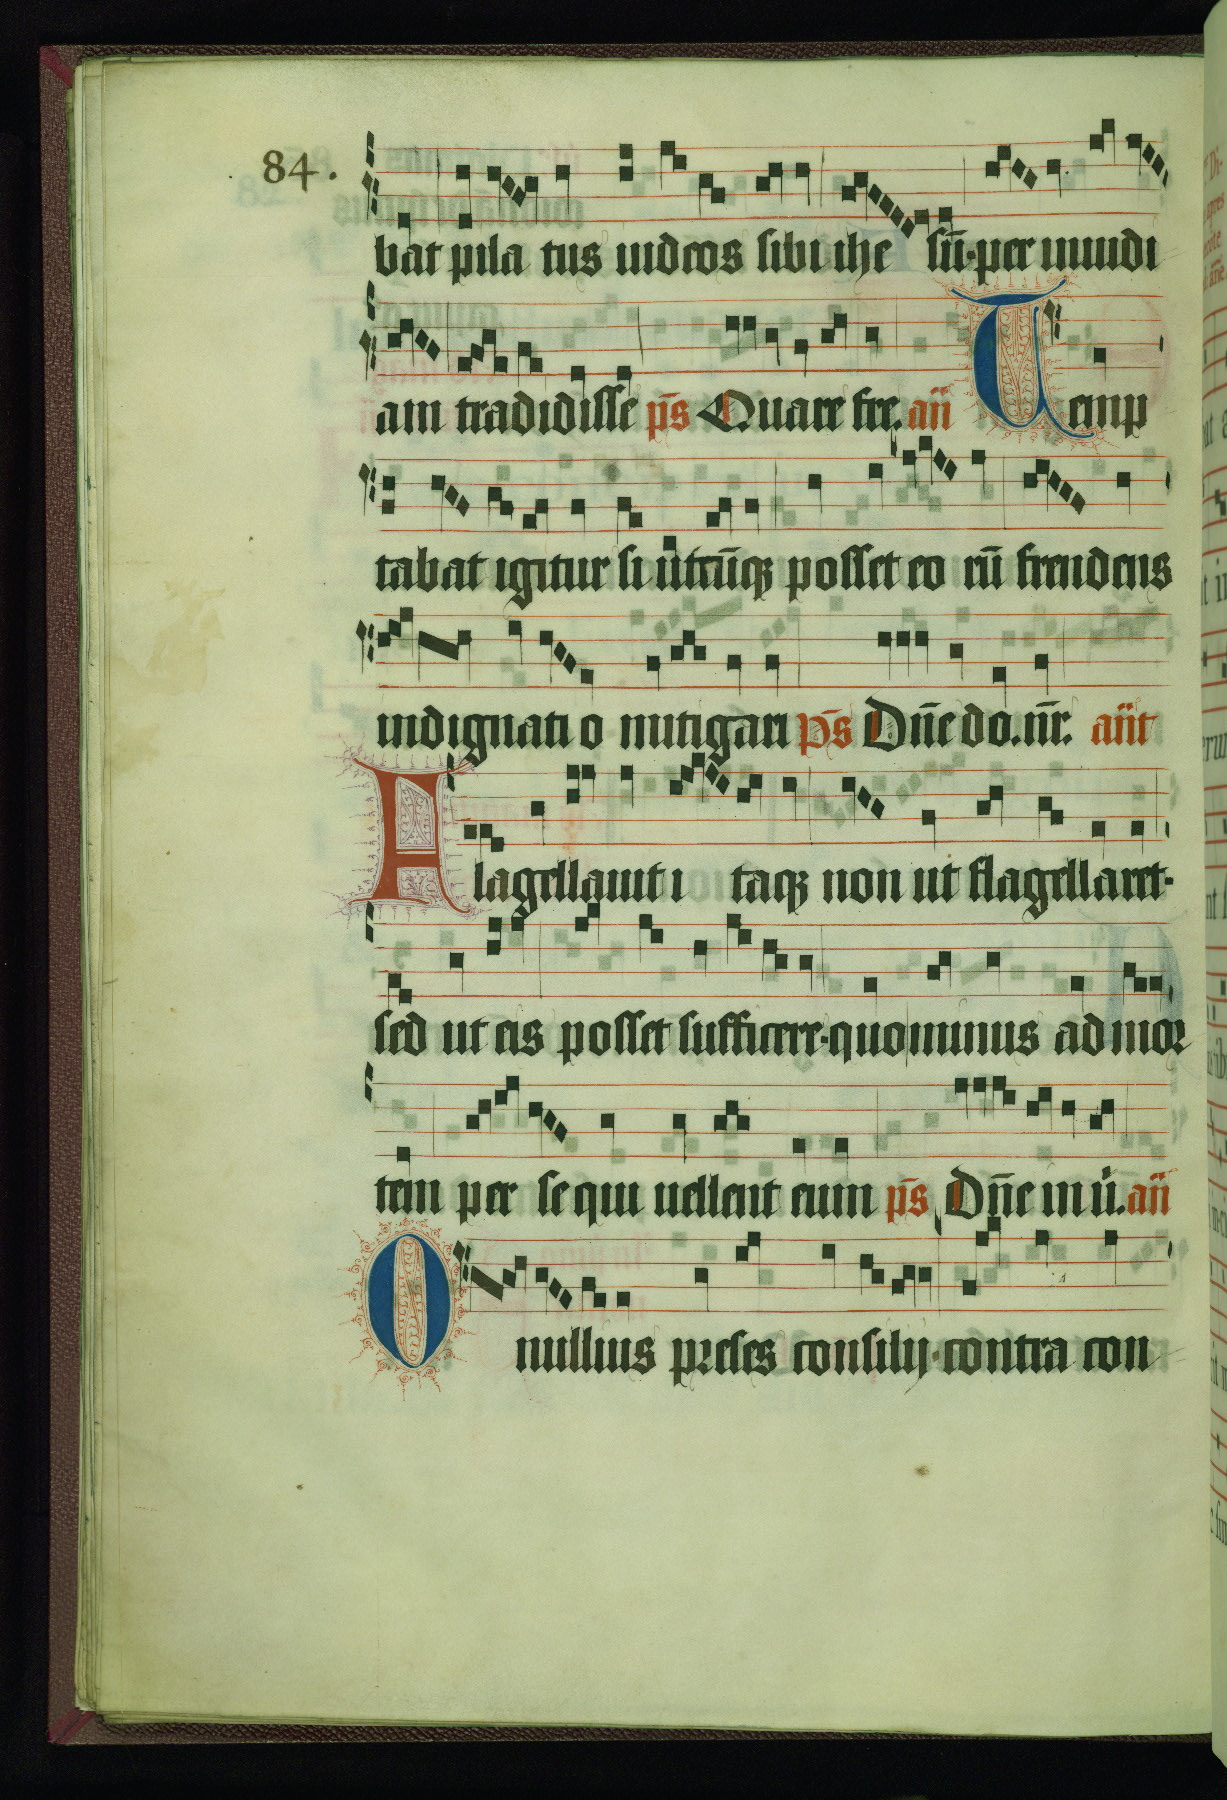 84.
bat pila tus iudeos sibi ihe sū·per inuidi
am tradidisse p̄s Quare fre. an̄ Temp
tabat igitur si utcūq; posset eo rū frendens
indignati o mitigari p̄s Dn̄e do.nr̄. an̄t
Flagellauit i taq; non ut flagellaret·
sed ut eis posset sufficere·quominus ad mor
tem per se qui uellent eum p̄s Dn̄e in ū. an̄
O nullius preses consilij·contra con